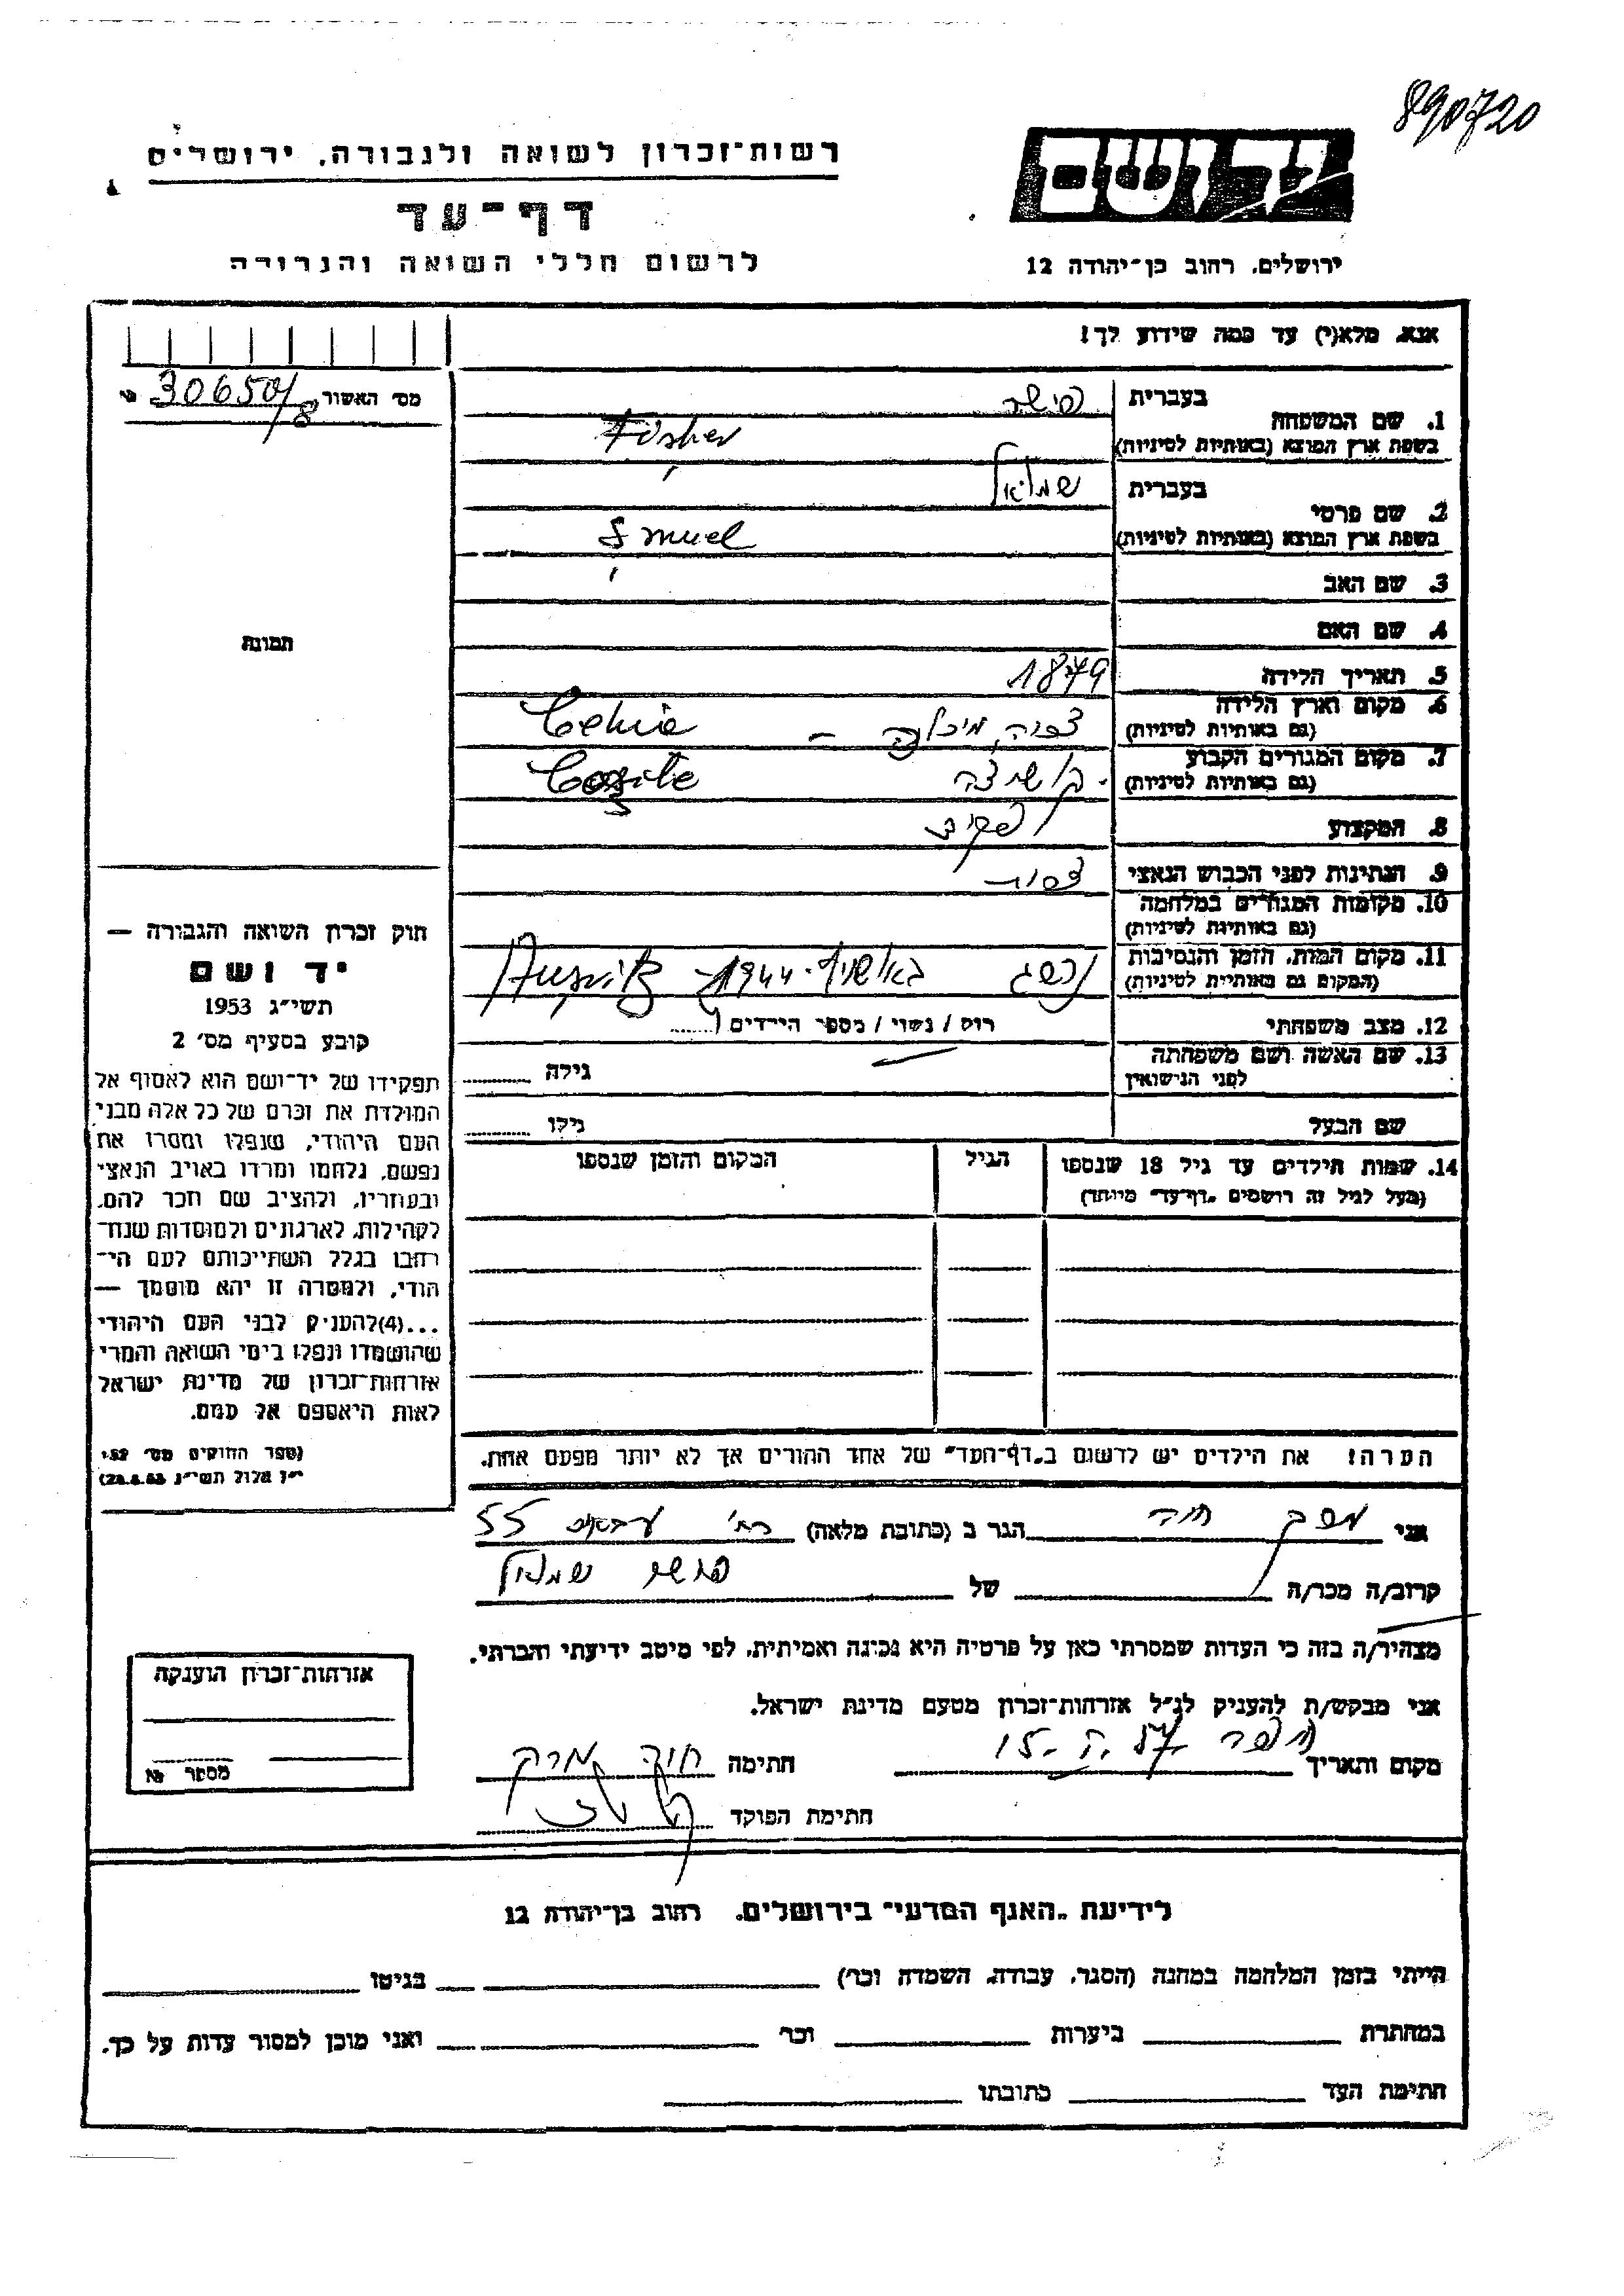 890720
יד ושם
רשות־זכרון לשואה ולגבורה, ירושלים
דף־עד
לרשום חללי השואה והגבורה
ירושלים, רחוב בן־יהודה 12
אנא, מלא(י) עד כמה שידוע לך!
מס׳ האשור 306501/8
בעברית פישר
1. שם המשפחה
בשפת ארץ המוצא (באותיות לטיניות) Fisher
בעברית שמואל
2. שם פרטי
בשפת ארץ המוצא (באותיות לטיניות) Smuel
3. שם האב
4. שם האם
תמונה
5. תאריך הלידה 1879
6. מקום וארץ הלידה
(גם באותיות לטיניות) Cehia
7. מקום המגורים הקבוע
(גם באותיות לטיניות) קושיצה
8. המקצוע
9. הנתינות לפני הכבוש הנאצי
10. מקומות המגורים במלחמה
(גם באותיות לטיניות)
11. מקום המות, הזמן והנסיבות
(המקום גם באותיות לטיניות) באושויץ - 1944
12. מצב משפחתי רוק / נשוי / מספר הילדים
13. שם האשה ושם משפחתה
לפני הנישואין גילה
שם הבעל גילו
14. שמות הילדים עד גיל 18 שנספו הגיל המקום והזמן שנספו
(מעל לגיל זה רושמים "דף־עד" מיוחד)
הערה! את הילדים יש לרשום ב"דף־העד" של אחד ההורים אך לא יותר מפעם אחת.
חוק זכרון השואה והגבורה —
יד ושם
תשי״ג 1953
קובע בסעיף מס׳ 2
תפקידו של יד־ושם הוא לאסוף אל
המולדת את זכרם של כל אלה מבני
העם היהודי, שנפלו ומסרו את
נפשם, נלחמו ומרדו באויב הנאצי
ובעוזריו, ולהציב שם וזכר להם,
לקהילות, לארגונים ולמוסדות שנח־
רבו בגלל השתייכותם לעם הי־
הודי, ולמטרה זו יהא מוסמך —
...(4)להעניק לבני העם היהודי
שהושמדו ונפלו בימי השואה והמרי
אזרחות־זכרון של מדינת ישראל
לאות היאספם אל עמם.
(ספר החוקים מס׳ 132,
י״ז אלול תשי״ג 28.8.53)
אני חוה הגר ב (כתובת מלאה) 55
קרוב/ה מכר/ה של פישר שמואל
מצהיר/ה בזה כי העדות שמסרתי כאן על פרטיה היא נכונה ואמיתית, לפי מיטב ידיעתי והכרתי.
אני מבקש/ת להעניק לנ״ל אזרחות־זכרון מטעם מדינת ישראל.
מקום ותאריך חתימה חוה
חתימת הפוקד
אזרחות־זכרון הוענקה
מספר №
לידיעת "האגף המדעי" בירושלים, רחוב בן־יהודה 12
הייתי בזמן המלחמה במחנה (הסגר, עבודה, השמדה וכר) בגיטו
במחתרת ביערות וכר ואני מוכן למסור עדות על כך.
חתימת העד כתובתו